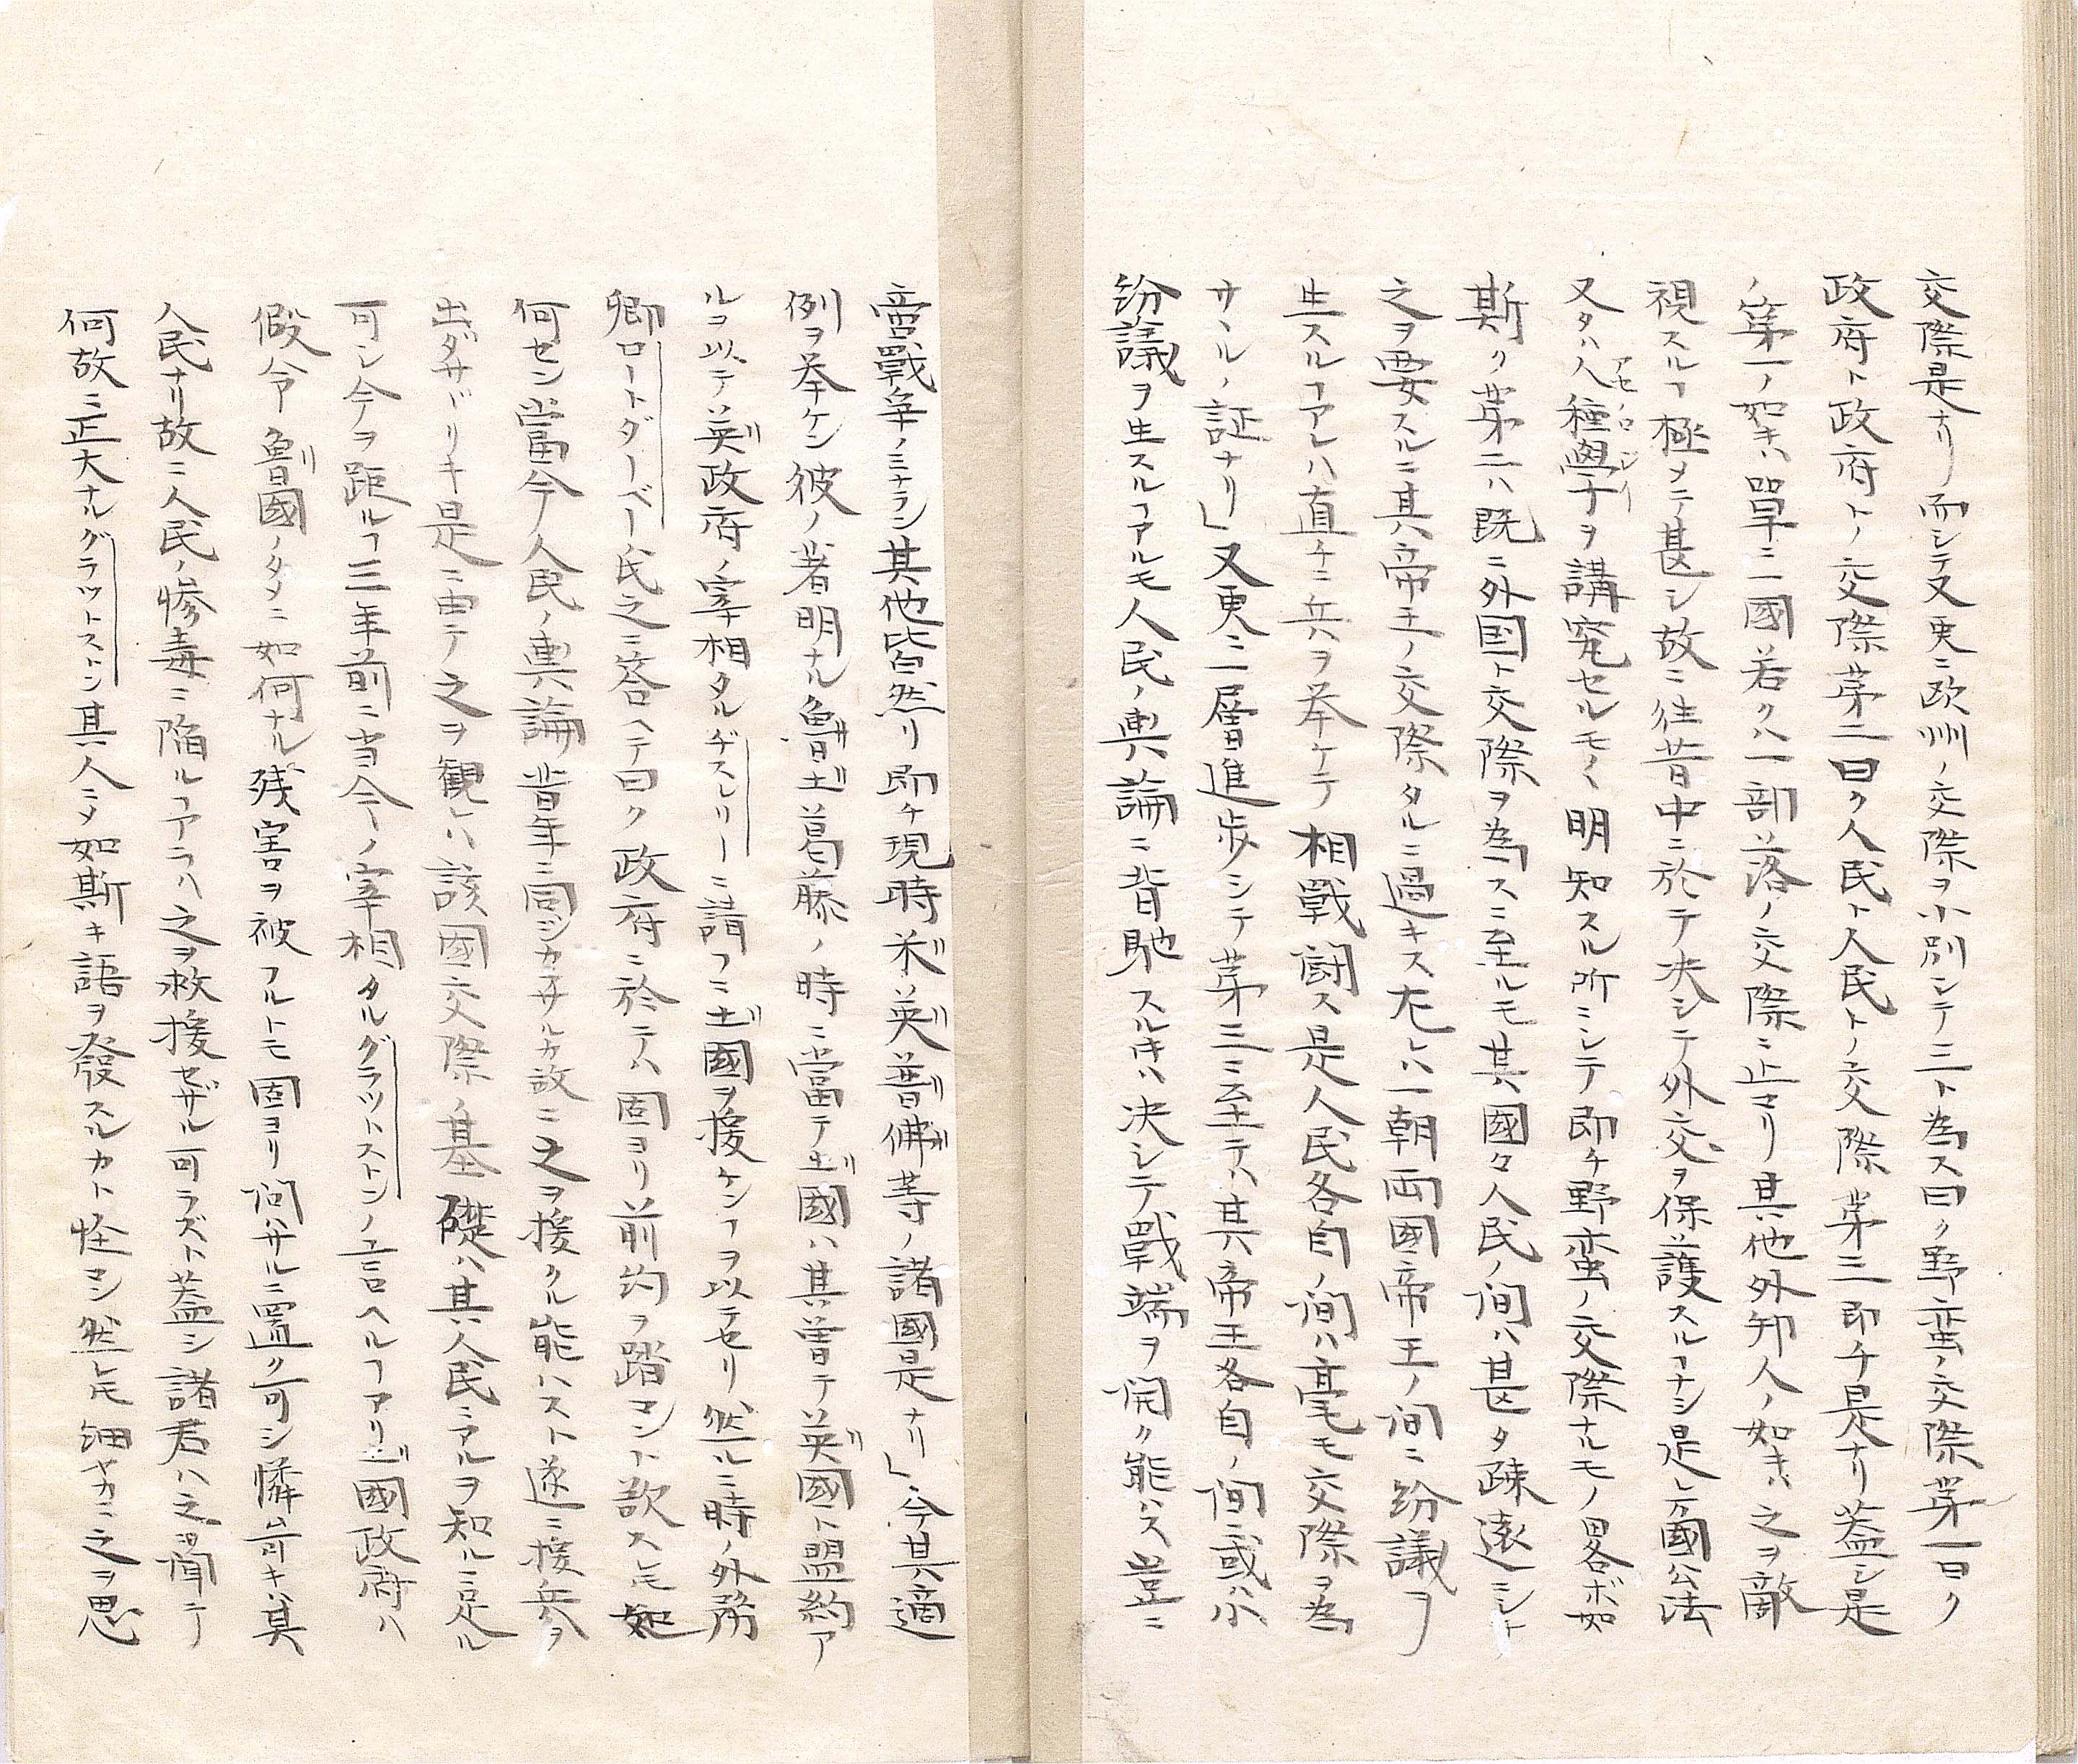 交際是ナリ而シテ又更ニ欧洲ノ交際ヲ小別シテ三ト為ス曰ク野蛮ノ交際第一曰ク
政府ト政府トノ交際第二曰ク人民ト人民トノ交際第三即チ是ナリ蓋シ是
ノ第一ノ如キハ單ニ一國若クハ一部落ノ交際ニ止マリ其他外邦人ノ如キハ之ヲ敵
視スルヿ極メテ甚シ故ニ往昔中ニ於テ决シテ外交ヲ保護スルヿナシ是レ万國公法
又タハ人種學ヲ講究セルモノヽ明知スル所ニシテ即チ野蛮ノ交際ナルモノ畧ボ如
アセロジー
斯ク第二ハ既ニ外国ト交際ヲ為スニ至ルモ其國々人民ノ间ハ甚タ疎遠ニシト
之ヲ要スルニ其帝王ノ交際タルニ過キス左レハ一朝両國帝王ノ间ニ紛議ヲ
生スルヿアレハ直チニ兵ヲ挙ケテ相戰闘ス是人民各自ノ间ハ毫モ交際ヲ為
サヽルノ証ナリ」又更ニ一層進歩シテ第三ニ至テハ其帝王各自ノ间ニ或ハ小
紛議ヲ生スルヿアルモ人民ノ輿論ニ背馳スルキハ决シテ戰端ヲ開ク能ハス豈ニ
啻戰争ノミナラン其他皆然リ即チ現時米英普佛等ノ諸國是ナリ」今其適
例ヲ挙ケン彼ノ著明ナル魯土葛藤ノ時ニ當テ土國ハ其曽テ英國ト盟約ア
ルヲ以テ英政府ノ宰相タルヂスレリーニ請フニ土國ヲ援ケンヿヲ以テセリ然ルニ時ノ外務
卿ロートダーベー氏之ニ答ヘテ曰ク政府ニ於テハ固ヨリ前約ヲ踏マント欲スルモ如
何セン當今人民ノ輿論昔年ニ同ジカラサルカ故ニ之ヲ援クル能ハスト遂ニ援兵ヲ
出ダサヾリキ是ニ由テ之ヲ観レハ該國交際ノ基礎ハ其人民ニアルヲ知ルニ足ル
可シ今ヲ距ルヿ三年前ニ当今ノ宰相タルグラツトストンノ言ヘルヿアリ土國政府ハ
假令魯國ノタメニ如何ナル残害ヲ被フルトモ固ヨリ问ハサルニ置ク可シ憐可キハ其
人民ナリ故ニ人民ノ惨毒ニ陥ルヿアラハ之ヲ救援セザル可ラズト蓋シ諸君ハ之ヲ聞テ
何故ニ正大ナルグラツトストン其人ニメ如斯キ語ヲ發スルカト怪マン然レ𪜈細ヤカニ之ヲ思